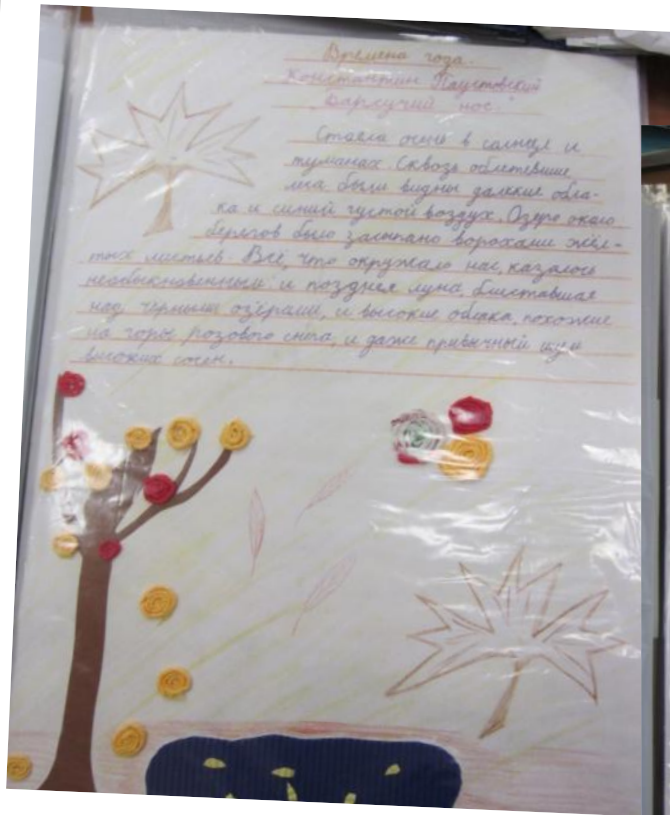 Времена года.
Константин Паустовский
"Барсучий нос."
Стояла осень в солнце и
туманах. Сквозь облетевшие
леса были видны далекие обла-
ка и синий густой воздух. Озеро около
берегов было засыпано ворохами жёл-
тых листьев. Всё, что окружало нас, казалось
необыкновенным: и поздняя луна, блиставшая
над черными озёрами, и высокие облака, похожие
на горы розового снега, и даже привычный шум
высоких сосен.